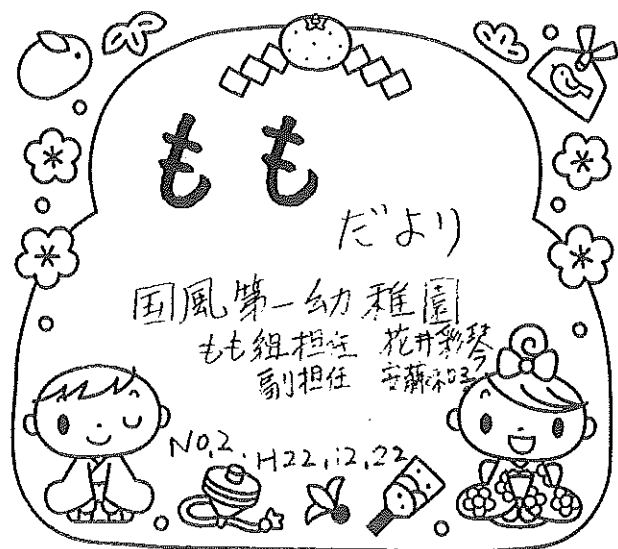 もも
だより
国風第一幼稚園
もも組担任 花井彩琴
副担任 安藤
No,2. H22,12,22